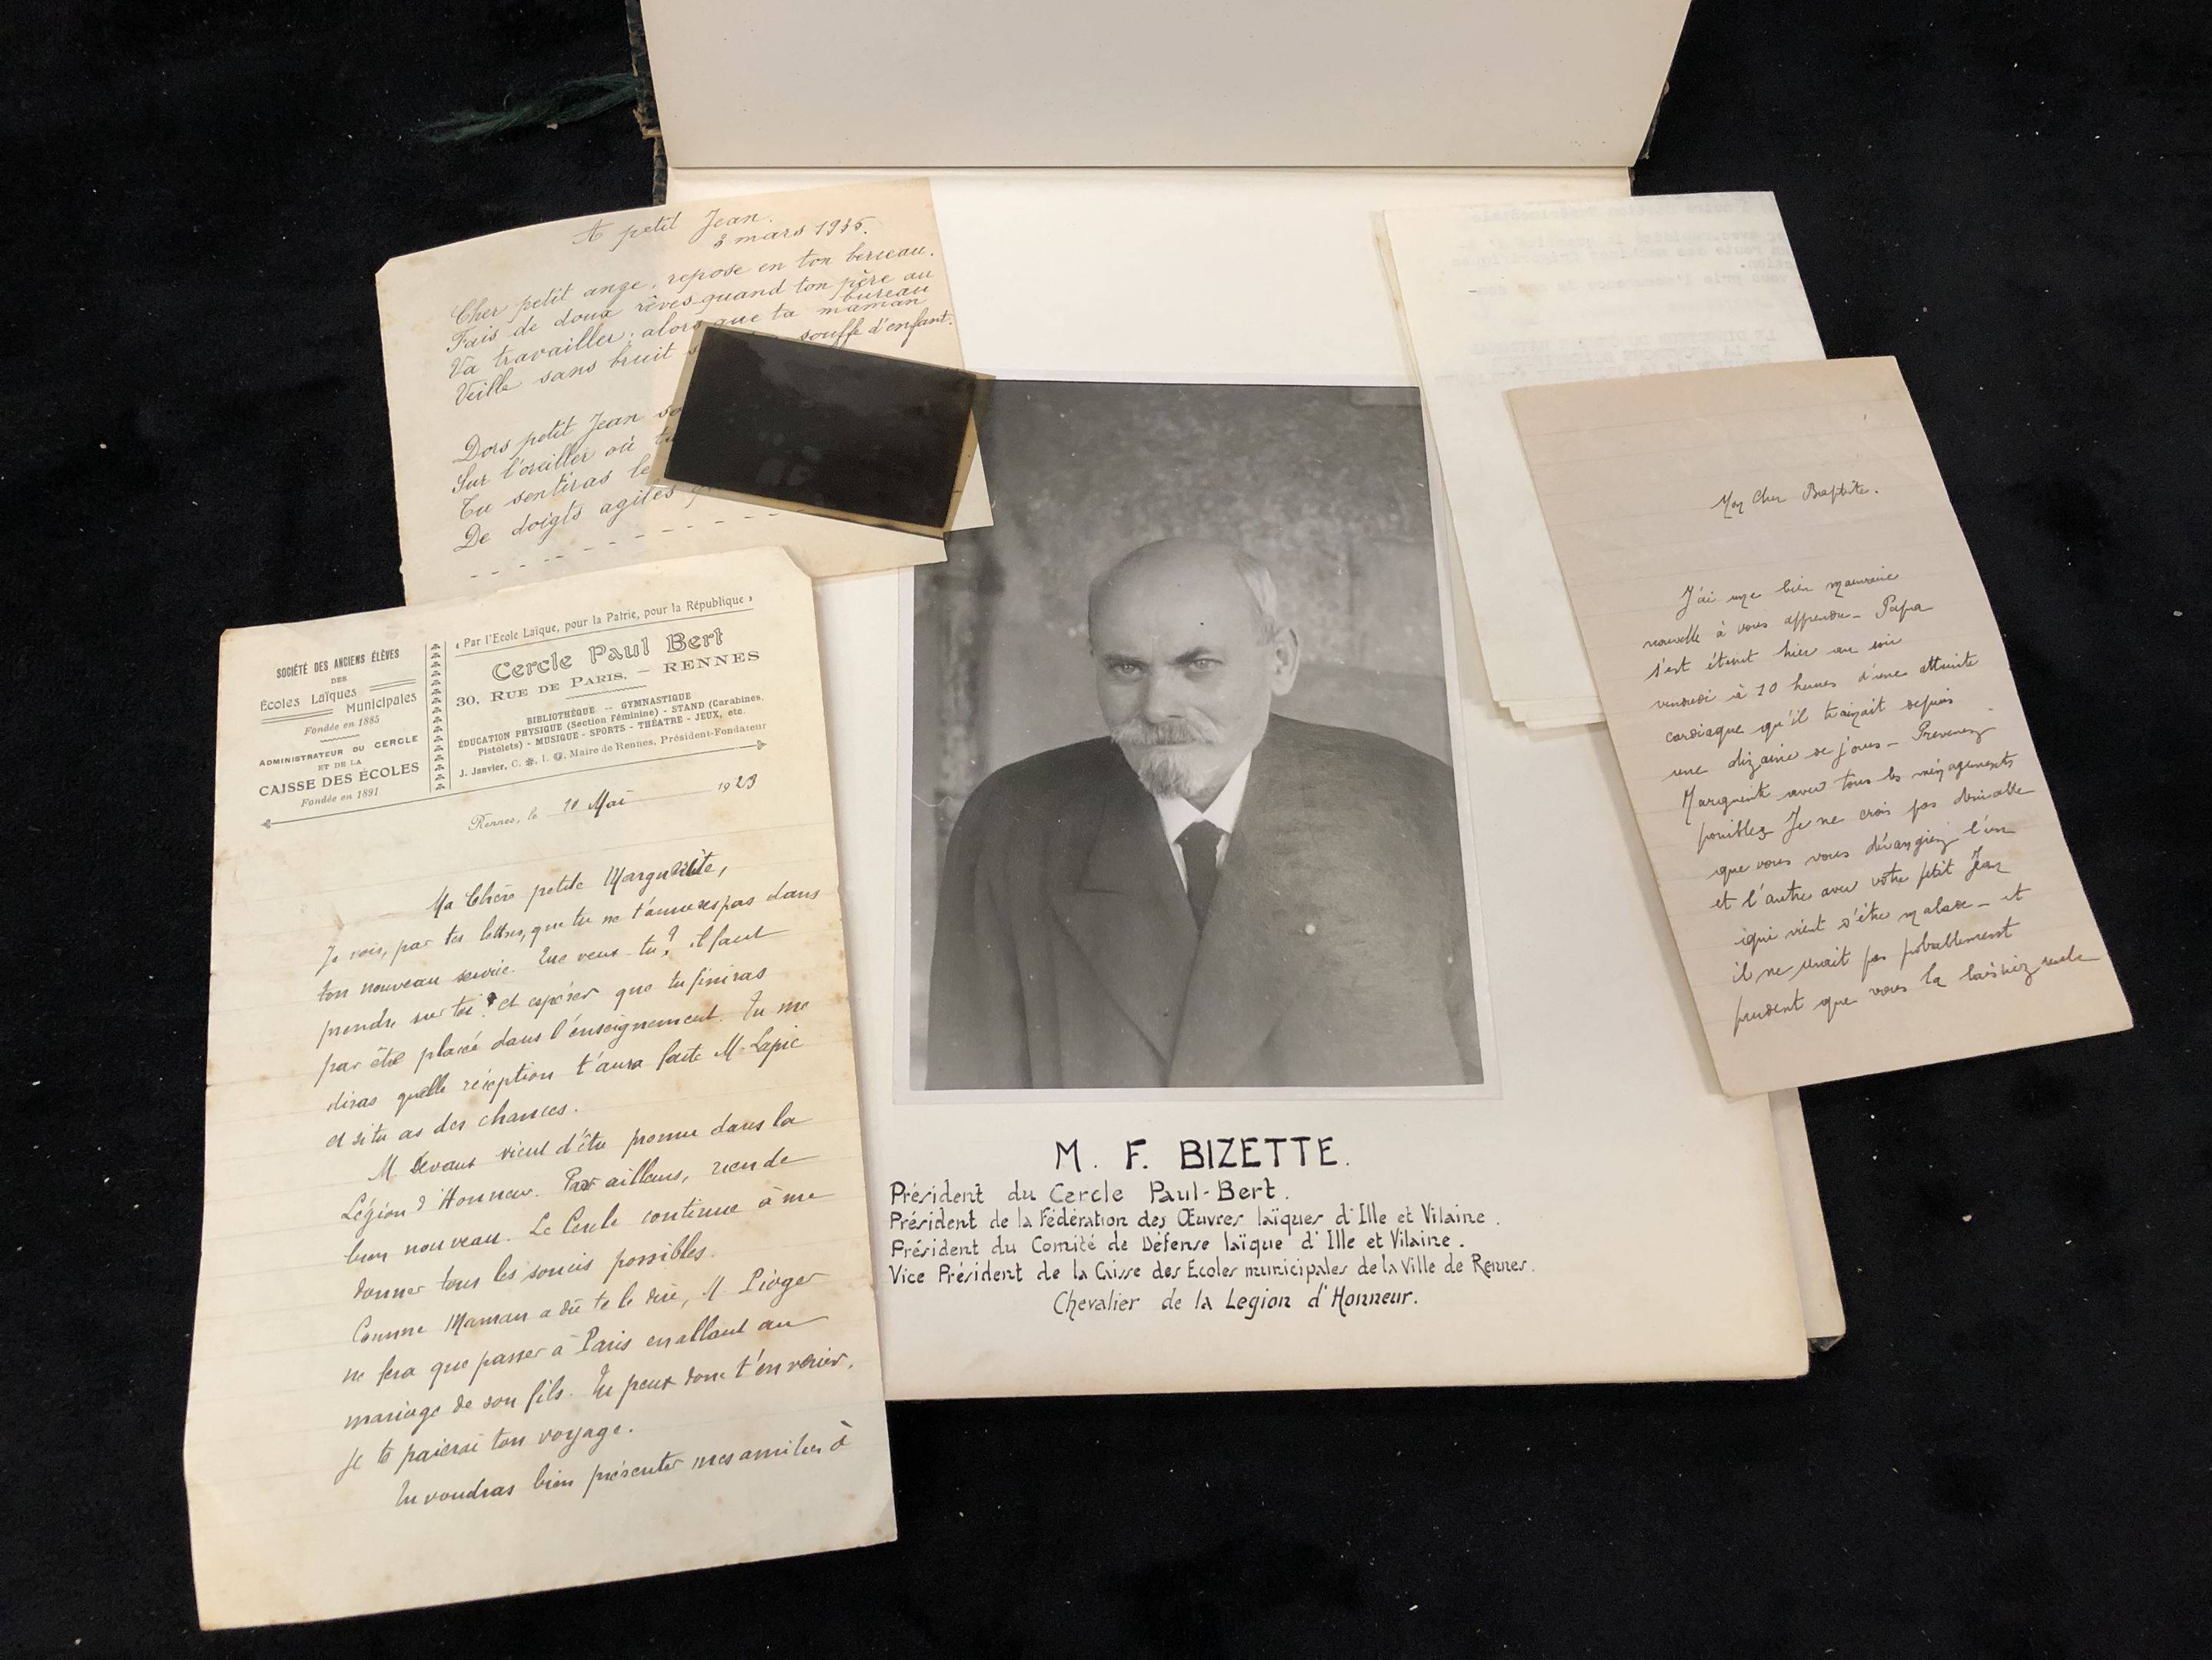 A petit Jean.
3 mars 1936.
Cher petit ange, repose en ton berceau.
Fais de doux rêves quand ton père au
bureau
Va travailler; alors que ta maman
Veille sans bruit souffle d'enfant.
Dors petit Jean
Sur l'oreiller où
Tu sentiras le
De doigts agiles
SOCIÉTÉ DES ANCIENS ÉLÈVES
DES
Écoles Laïques
Municipales
Fondée en 1885
ADMINISTRATEUR DU CERCLE
ET DE LA
CAISSE DES ÉCOLES
Fondée en 1891
« Par l'Ecole Laïque, pour la Patrie, pour la République »
Cercle Paul Bert
30, RUE DE PARIS, — RENNES
BIBLIOTHÈQUE -- GYMNASTIQUE
ÉDUCATION PHYSIQUE (Section Féminine) - STAND (Carabines,
Pistolets) - MUSIQUE - SPORTS - THÉATRE - JEUX, etc.
J. Janvier, C. I. Maire de Rennes, Président-Fondateur
Rennes, le Mai 1923
Ma Chère petite Marguerite,
Je vois, par tes lettres, que tu ne t'amuses pas dans
ton nouveau service. Que veux-tu? il faut
prendre sur toi et espérer que tu finiras
par être placée dans l'enseignement. Tu me
diras quelle réception t'aura faite M. Lapie
et si tu as des chances.
M. Devaux vient d'être promu dans la
Légion d'Honneur. Par ailleurs, rien de
bien nouveau. Le Cercle continue à me
donner tous les soucis possibles.
Comme Maman a dû te le dire, M. Pioger
ne fera que passer à Paris en allant au
mariage de son fils. Tu peux donc t'en venir.
Je te paierai ton voyage.
Tu voudras bien présenter mes amitiés à
M. F. BIZETTE.
Président du Cercle Paul-Bert.
Président de la Fédération des Œuvres laïques d'Ille et Vilaine.
Président du Comité de Défense laïque d'Ille et Vilaine.
Vice Président de la Caisse des Ecoles municipales de la Ville de Rennes.
Chevalier de la Legion d'Honneur.
Mon Cher Baptiste.
J'ai une bien mauvaise
nouvelle à vous apprendre - Papa
s'est éteint hier au soir
vendredi à 10 heures d'une atteinte
cardiaque qu'il traînait depuis
une dizaine de jours - Prévenez
Marguerite avec tous les ménagements
possibles Je ne crois pas désirable
que vous vous dérangiez l'un
et l'autre avec votre petit Jean
qui vient d'être malade - et
il ne serait pas probablement
prudent que vous la laissiez seule